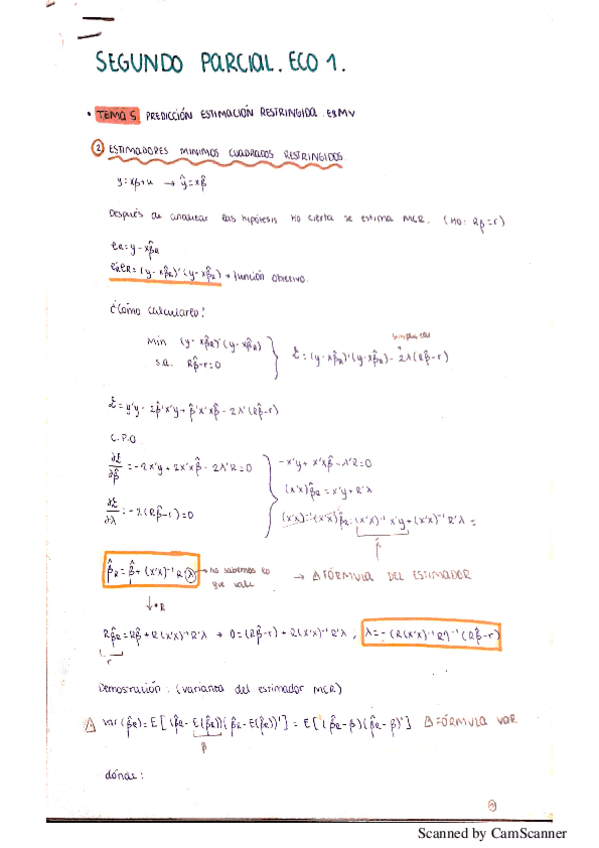 SEGUNDO PARCIAL. ECO 1.
• TEMA 5 PREDICCIÓN ESTIMACIÓN RESTRINGIDA. ESMV
② ESTIMADORES MINIMOS CUADRADOS RESTRINGIDOS.
y=xβ+u → ŷ=xβ̂
Después de analizar las hipótesis Ho cierta se estima MCR. (Ho: Rβ=r)
eR=y-xβ̂R
e'ReR=(y-xβ̂R)'(y-xβ̂R) → función objetivo.
¿Cómo calcularlo?
Min (y-xβ̂R)'(y-xβ̂R)
s.a. Rβ̂-r=0
£=(y-xβ̂R)'(y-xβ̂R)-2λ(Rβ̂-r)
£=y'y-2β̂'x'y+β̂'x'xβ̂-2λ'(Rβ̂-r)
C.P.O
∂£/∂β̂=-2x'y+2x'xβ̂-2λ'R=0
∂£/∂λ=-2(Rβ̂-r)=0
-x'y+x'xβ̂-λ'R=0
(x'x)β̂R=x'y+R'λ
(x'x)⁻¹(x'x)β̂R=(x'x)⁻¹x'y+(x'x)⁻¹R'λ=
β̂
β̂R=β̂+(x'x)⁻¹R'λ → no sabemos lo que vale → △ FÓRMULA DEL ESTIMADOR
↓•R
Rβ̂R=Rβ̂+R(x'x)⁻¹R'λ → 0=(Rβ̂-r)+R(x'x)⁻¹R'λ, λ=-(R(x'x)⁻¹R')⁻¹(Rβ̂-r)
r
Demostración: (varianza del estimador MCR)
△ var(β̂R)=E[(β̂R-E(β̂R))(β̂R-E(β̂R))']=E[(β̂R-β)(β̂R-β)'] △ FÓRMULA VAR
β
dónde:
Scanned by CamScanner